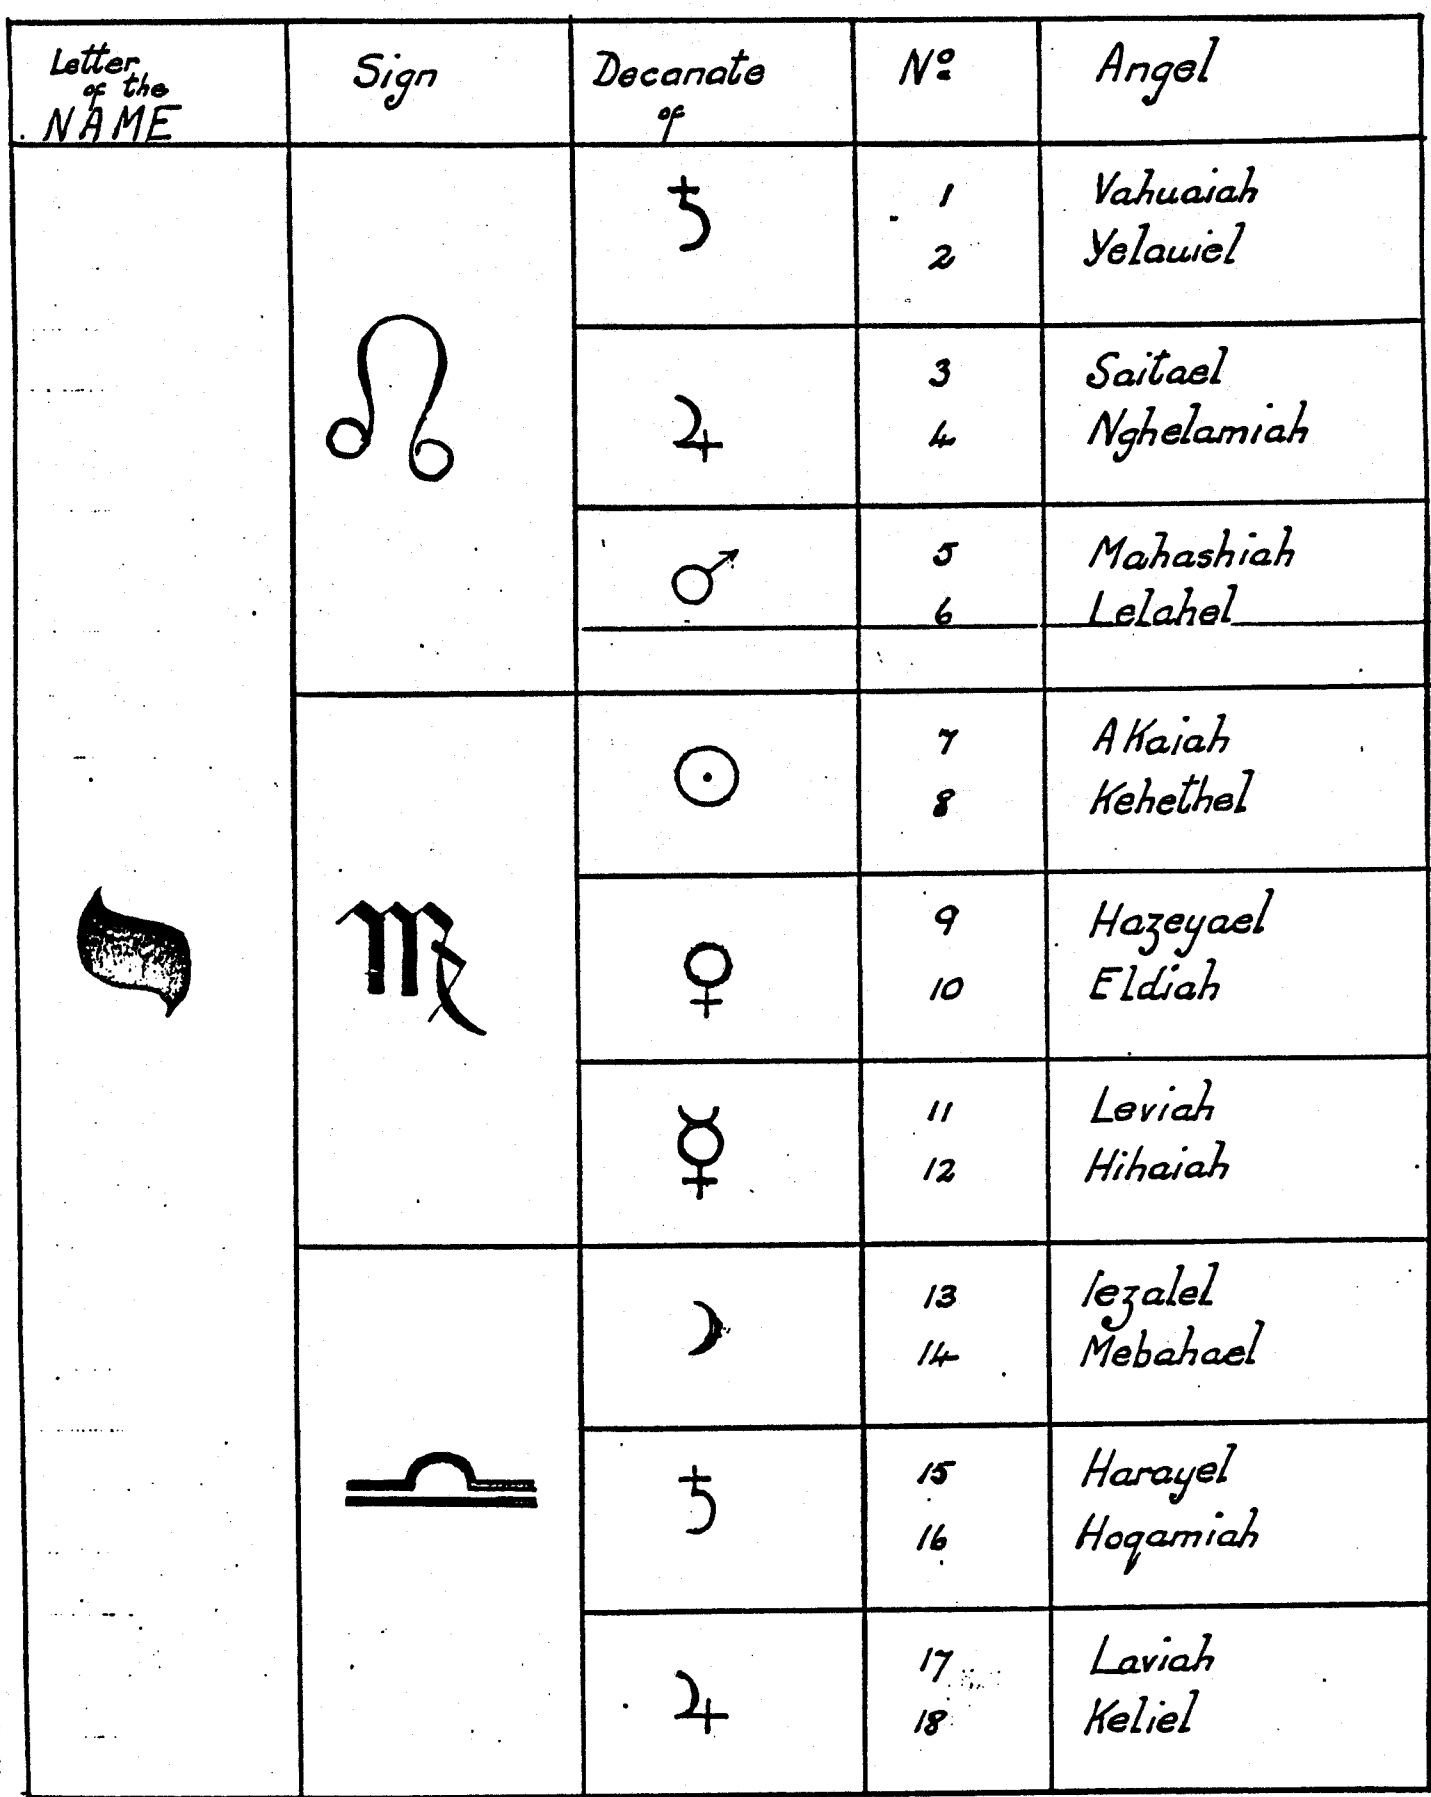 Letter
of the
NAME
Sign
Decanate
of
Nº
Angel
י
♌
♄
1 Vahuaiah
2 Yelauiel
♃
3 Saitael
4 Nghelamiah
♂
5 Mahashiah
6 Lelahel
♍
☉
7 AKaiah
8 Kehethel
♀
9 Hazeyael
10 Eldiah
☿
11 Leviah
12 Hihaiah
♎
☽
13 Iezalel
14 Mebahael
♄
15 Harayel
16 Hoqamiah
♃
17 Laviah
18 Keliel